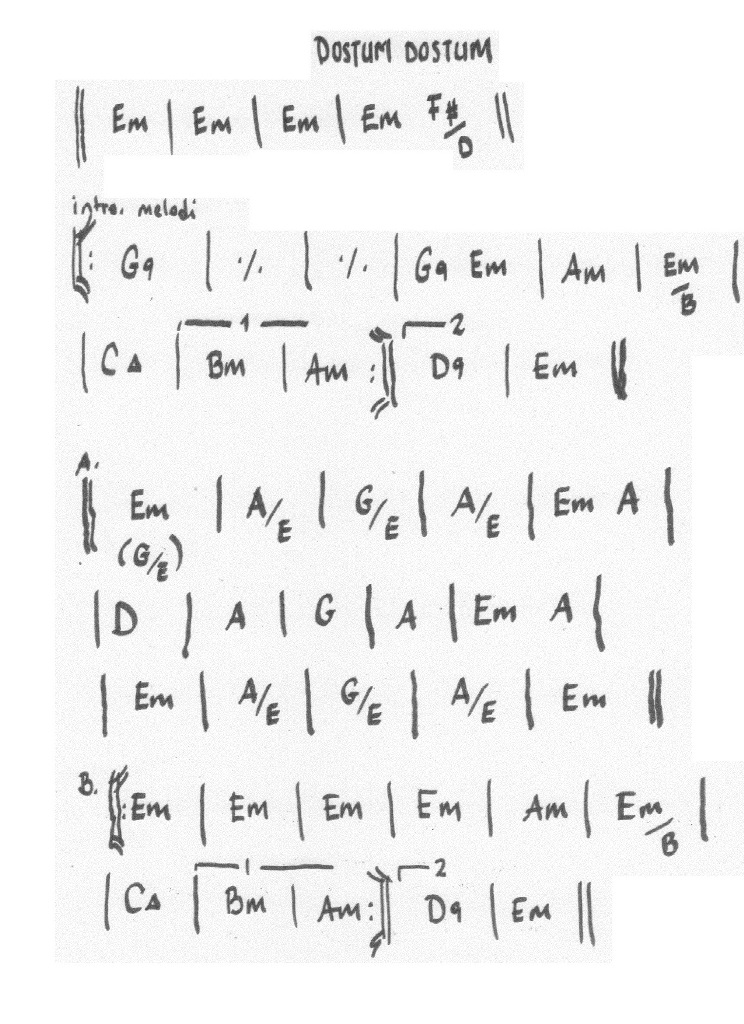 DOSTUM DOSTUM
‖ Em | Em | Em | Em F#/D ‖
intro. melodi
‖: G9 | ٪ | ٪ | G9 Em | Am | Em/B |
| C△ | 1 Bm | Am :‖ 2 D9 | Em ‖
A.
‖ Em | A/E | G/E | A/E | Em A |
(G/E)
| D | A | G | A | Em A |
| Em | A/E | G/E | A/E | Em ‖
B. ‖: Em | Em | Em | Em | Am | Em/B |
| C△ | 1 Bm | Am :‖ 2 D9 | Em ‖